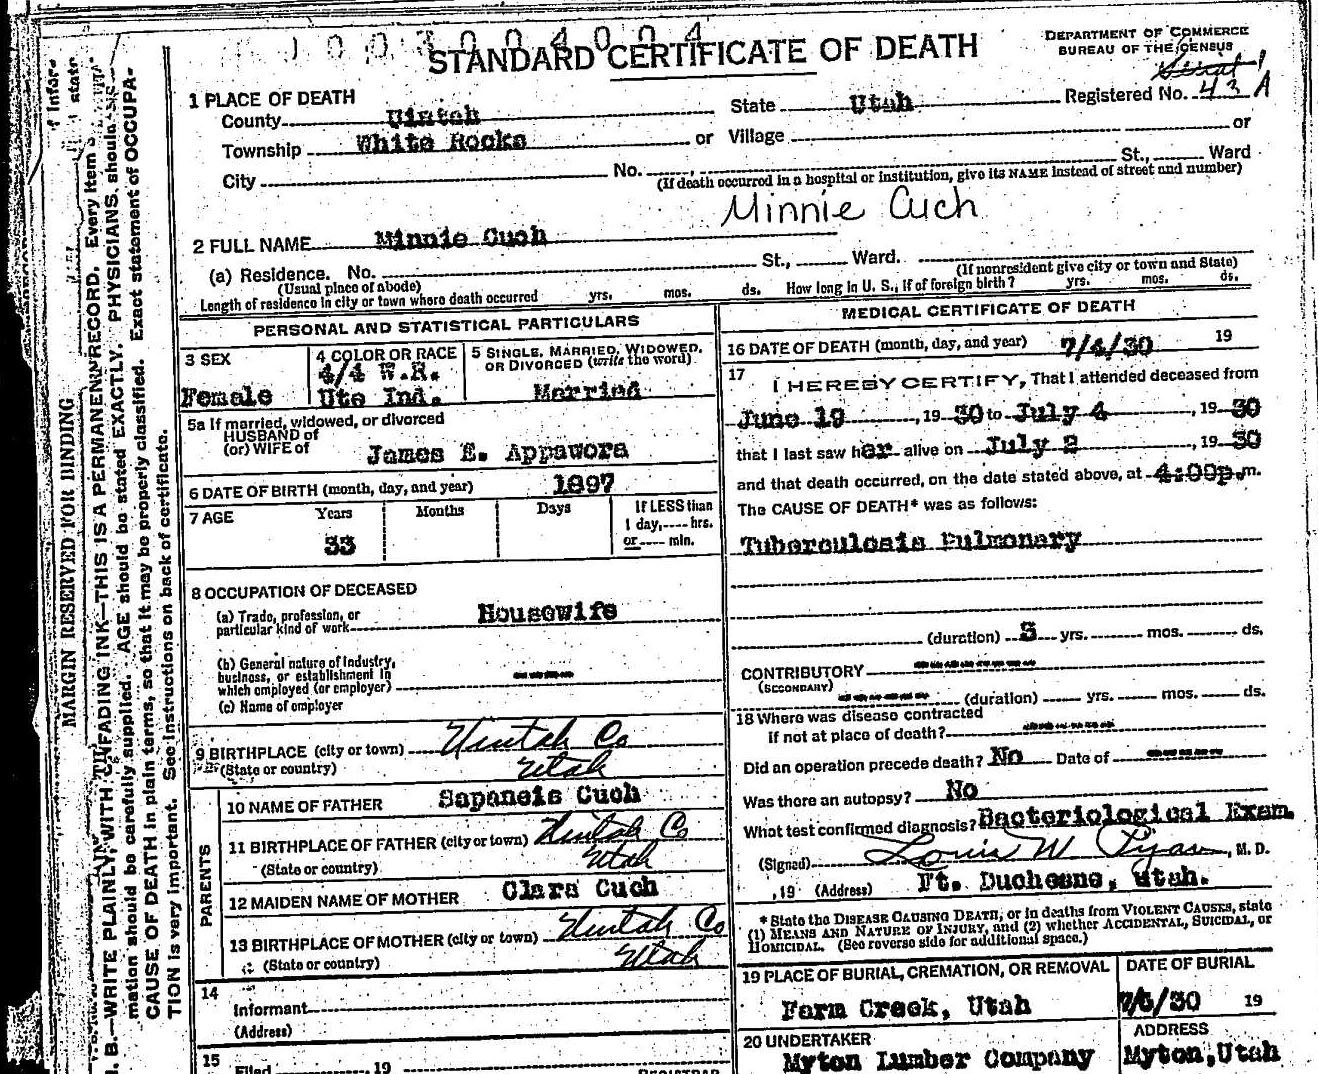 1003004004
STANDARD CERTIFICATE OF DEATH
DEPARTMENT OF COMMERCE
BUREAU OF THE CENSUS
1 PLACE OF DEATH
Registered No. 43 A
County Uintah State Utah
Township White Rocks or Village or
City No. , St., Ward
(If death occurred in a hospital or institution, give its NAME instead of street and number)
Minnie Cuch
2 FULL NAME Minnie Cuch
(a) Residence. No. St., Ward.
(Usual place of abode) (If nonresident give city or town and State)
Length of residence in city or town where death occurred yrs. mos. ds. How long in U. S., if of foreign birth? yrs. mos. ds.
PERSONAL AND STATISTICAL PARTICULARS
3 SEX
Female
4 COLOR OR RACE
4/4 W.R.
Ute Ind.
5 SINGLE, MARRIED, WIDOWED,
OR DIVORCED (write the word)
Married
5a If married, widowed, or divorced
HUSBAND of
(or) WIFE of James E. Appawora
6 DATE OF BIRTH (month, day, and year) 1897
7 AGE Years Months Days If LESS than
1 day, ---- hrs.
or ---- min.
33
8 OCCUPATION OF DECEASED
(a) Trade, profession, or
particular kind of work Housewife
(b) General nature of industry,
business, or establishment in
which employed (or employer) ----
(c) Name of employer
9 BIRTHPLACE (city or town) Uintah Co
(State or country) Utah
PARENTS
10 NAME OF FATHER Sapaneis Cuch
11 BIRTHPLACE OF FATHER (city or town) Uintah Co
(State or country) Utah
12 MAIDEN NAME OF MOTHER Clara Cuch
13 BIRTHPLACE OF MOTHER (city or town) Uintah Co
(State or country) Utah
14
Informant
(Address)
15
Filed , 19
REGISTRAR
MEDICAL CERTIFICATE OF DEATH
16 DATE OF DEATH (month, day, and year) 7/4/30 19
17
I HEREBY CERTIFY, That I attended deceased from
June 19, 19 30 to July 4, 19 30
that I last saw her alive on July 2, 19 30
and that death occurred, on the date stated above, at 4:00p.m.
The CAUSE OF DEATH* was as follows:
Tuberculosis Pulmonary
(duration) 3 yrs. mos. ds.
CONTRIBUTORY ----
(SECONDARY) ---- (duration) yrs. mos. ds.
18 Where was disease contracted
if not at place of death? ----
Did an operation precede death? No Date of ----
Was there an autopsy? No
What test confirmed diagnosis? Bacteriological Exam.
(Signed) Louis W , M. D.
, 19 (Address) Ft. Duchesne, Utah.
* State the DISEASE CAUSING DEATH, or in deaths from VIOLENT CAUSES, state
(1) MEANS AND NATURE OF INJURY, and (2) whether ACCIDENTAL, SUICIDAL, or
HOMICIDAL. (See reverse side for additional space.)
19 PLACE OF BURIAL, CREMATION, OR REMOVAL
Farm Creek, Utah
DATE OF BURIAL
7/5/30 19
20 UNDERTAKER
Myton Lumber Company
ADDRESS
Myton, Utah
MARGIN RESERVED FOR BINDING
B.—WRITE PLAINLY, WITH UNFADING INK—THIS IS A PERMANENT RECORD. Every item
mation should be carefully supplied. AGE should be stated EXACTLY. PHYSICIANS should state
CAUSE OF DEATH in plain terms, so that it may be properly classified. Exact statement of OCCUPA-
TION is very important. See instructions on back of certificate.